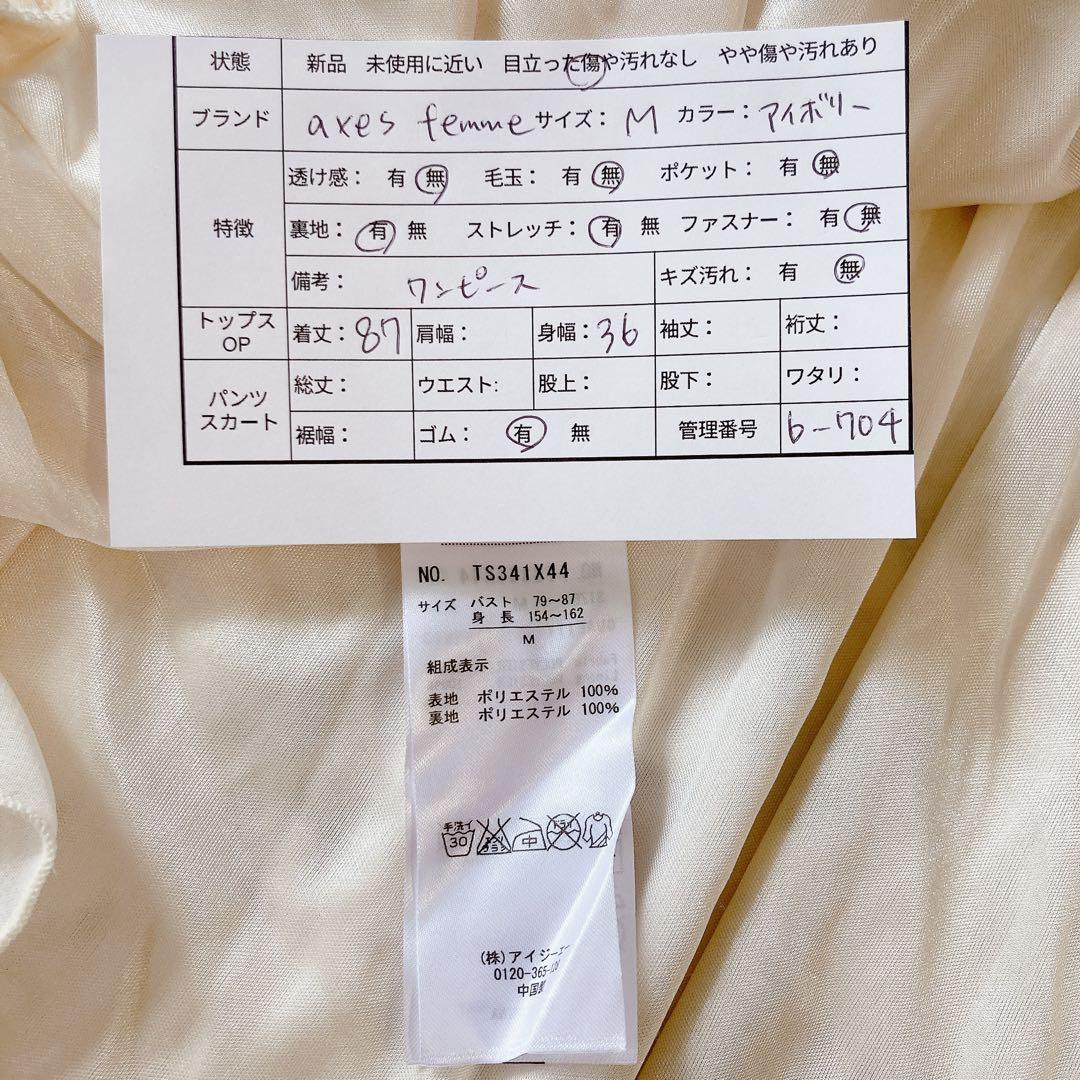 状態 新品 未使用に近い 目立った傷や汚れなし やや傷や汚れあり
ブランド axes femme サイズ: M カラー: アイボリー
特徴
透け感: 有 無 毛玉: 有 無 ポケット: 有 無
裏地: 有 無 ストレッチ: 有 無 ファスナー: 有 無
備考: ワンピース キズ汚れ: 有 無
トップス OP 着丈: 87 肩幅: 身幅: 36 袖丈: 裄丈:
パンツ スカート
総丈: ウエスト: 股上: 股下: ワタリ:
裾幅: ゴム: 有 無 管理番号 b-704
NO. TS341X44
サイズ バスト 79〜87
身長 154〜162
M
組成表示
表地 ポリエステル 100%
裏地 ポリエステル 100%
手洗イ 30 エンソサラシ 中 ドライ
(株)アイジーエー
0120-365-
中国製